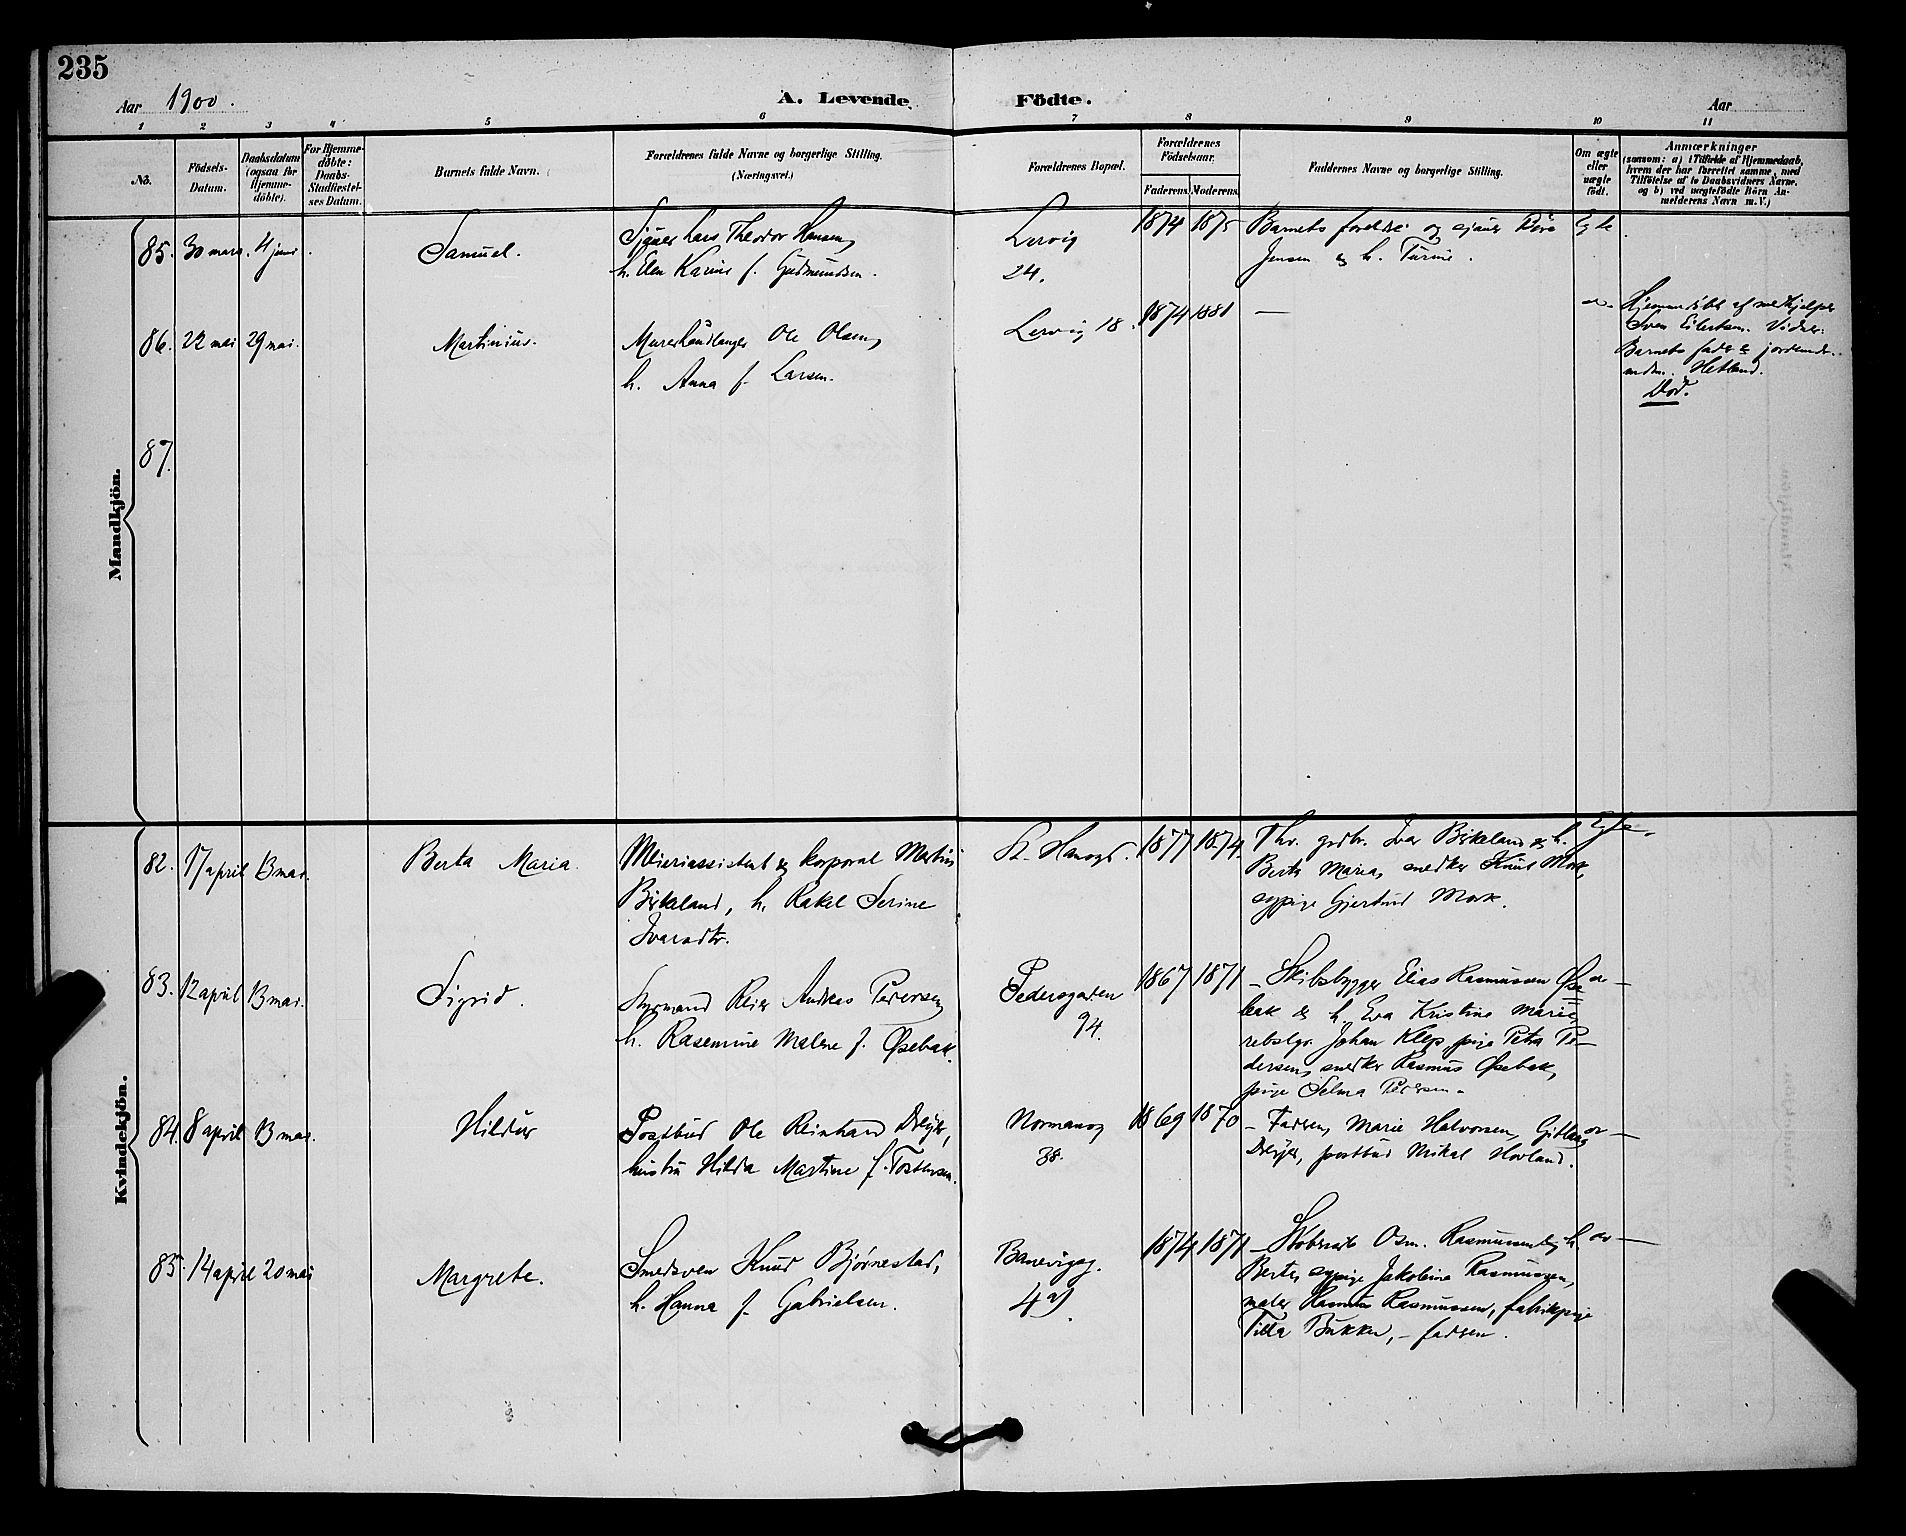 235
Aar 1900.
A. Levende Födte.
Aar
1 2 3 4 5 6 7 8 9 10 11
No.
Födsels-Datum.
Daabsdatum (ogsaa for Hjemme-döbte).
For Hjemme-döbte: Daabs-Stadfæstel-ses Datum.
Barnets fulde Navn.
Forældrenes fulde Navne og borgerlige Stilling. (Næringsvei.)
Forældrenes Bopæl.
Forældrenes Födselsaar.
Faderens. Moderens.
Faddernes Navne og borgerlige Stilling.
Om ægte eller uægte födt.
Anmærkninger
(saasom: a) i Tilfælde af Hjemmedaab,
hvem der har forrettet samme, med
Tilföielse af to Daabsvidners Navne.
og b) ved uægtefödte Börn An-
melderens Navn m.V.)
Mandkjön.
85. 30 mars. 4 juni. Samuel.
Sjauer Lars Theodor Hansen,
h. Elen Karine f. Gudmundsen.
Lervig
24.
1874 1875
Barnets foreldre og sjauer
Jensen & h. Turine.
Egte
86. 22 mai 29 mai. Martinius.
Murerhåndlanger Ole Olsen,
h. Anna f. Larsen.
Lervig 18.
1874 1881
—
Hjemmedöbt af medhjelper
Sven Eilertsen. Vidner:
Barnets fader & jordemor
mdm. Hetland.
Död.
87.
Kvindekjön.
82. 17 april 13 mai. Berta Maria.
Meieriassistent & korporal Martin
Birkeland, h. Rakel Serine
Ivarsdtr.
St. Hansgd.
1877 1874.
Thv. grdbr. Ivar Birkeland & h.
Berta Maria, snedker Knut Mork,
sypige Gjertrud Mork.
Egte.
83. 12 april 13 mai. Sigrid.
Styrmand Reier Andreas Pedersen,
h. Rasmine Malene f. Øsebak.
Pedersgaden
94.
1867 1871
— Skibsbygger Elias Rasmussen Øse-
bak & h. Eva Kristine Marie,
rebslgr. Johan Klep, pige Petra Pe-
dersen, snedker Rasmus Øsebak,
pige Selma Pedersen.
84. 8 april 13 mai. Hildur
Postbud Ole Reinhard Dreyer,
hustru Hilda Martine f. Tostensen.
Normansg
38.
1869 1870
— Faderen, Marie Halvorsen,
Dreyer, postbud Mikal Hovland.
85. 14 april 20 mai Margrete.
Smedsven Knud Bjørnestad,
h. Hanna f. Gabrielsen.
Banevigsg.
4 a).
1874 1871
— Osm. Rasmussen & h.
Berte, sypige Jakobine Rasmussen,
maler Rasmus Rasmussen, fabrikpige
Tilla Bukken, – faderen.